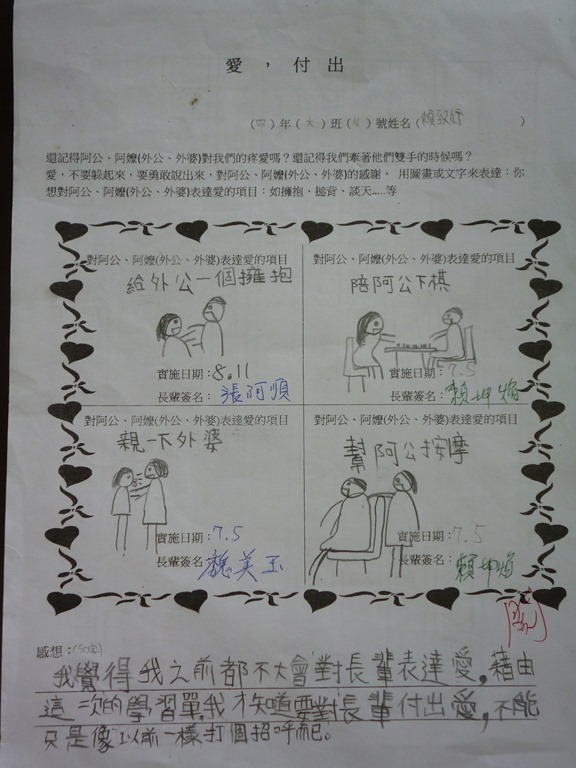 愛，付出
(四)年(大)班( )號姓名(賴致妤)
還記得阿公、阿嬤(外公、外婆)對我們的疼愛嗎？還記得我們牽著他們雙手的時候嗎？
愛，不要躲起來，要勇敢說出來，對阿公、阿嬤(外公、外婆)的感謝， 用圖畫或文字來表達：你
想對阿公、阿嬤(外公、外婆)表達愛的項目：如擁抱、搥背、談天.....等
對阿公、阿嬤(外公、外婆)表達愛的項目
給外公一個擁抱
實施日期：8.11
長輩簽名：張阿順
對阿公、阿嬤(外公、外婆)表達愛的項目
陪阿公下棋
實施日期：7.5
長輩簽名：賴坤焔
對阿公、阿嬤(外公、外婆)表達愛的項目
親一下外婆
實施日期：7.5
長輩簽名：魏美玉
對阿公、阿嬤(外公、外婆)表達愛的項目
幫阿公按摩
實施日期：7.5
長輩簽名：賴坤焔
感想：(50字)
我覺得我之前都不大會對長輩表達愛，藉由
這一次的學習單，我才知道要對長輩付出愛，不能
只是像以前一樣打個招呼而已。